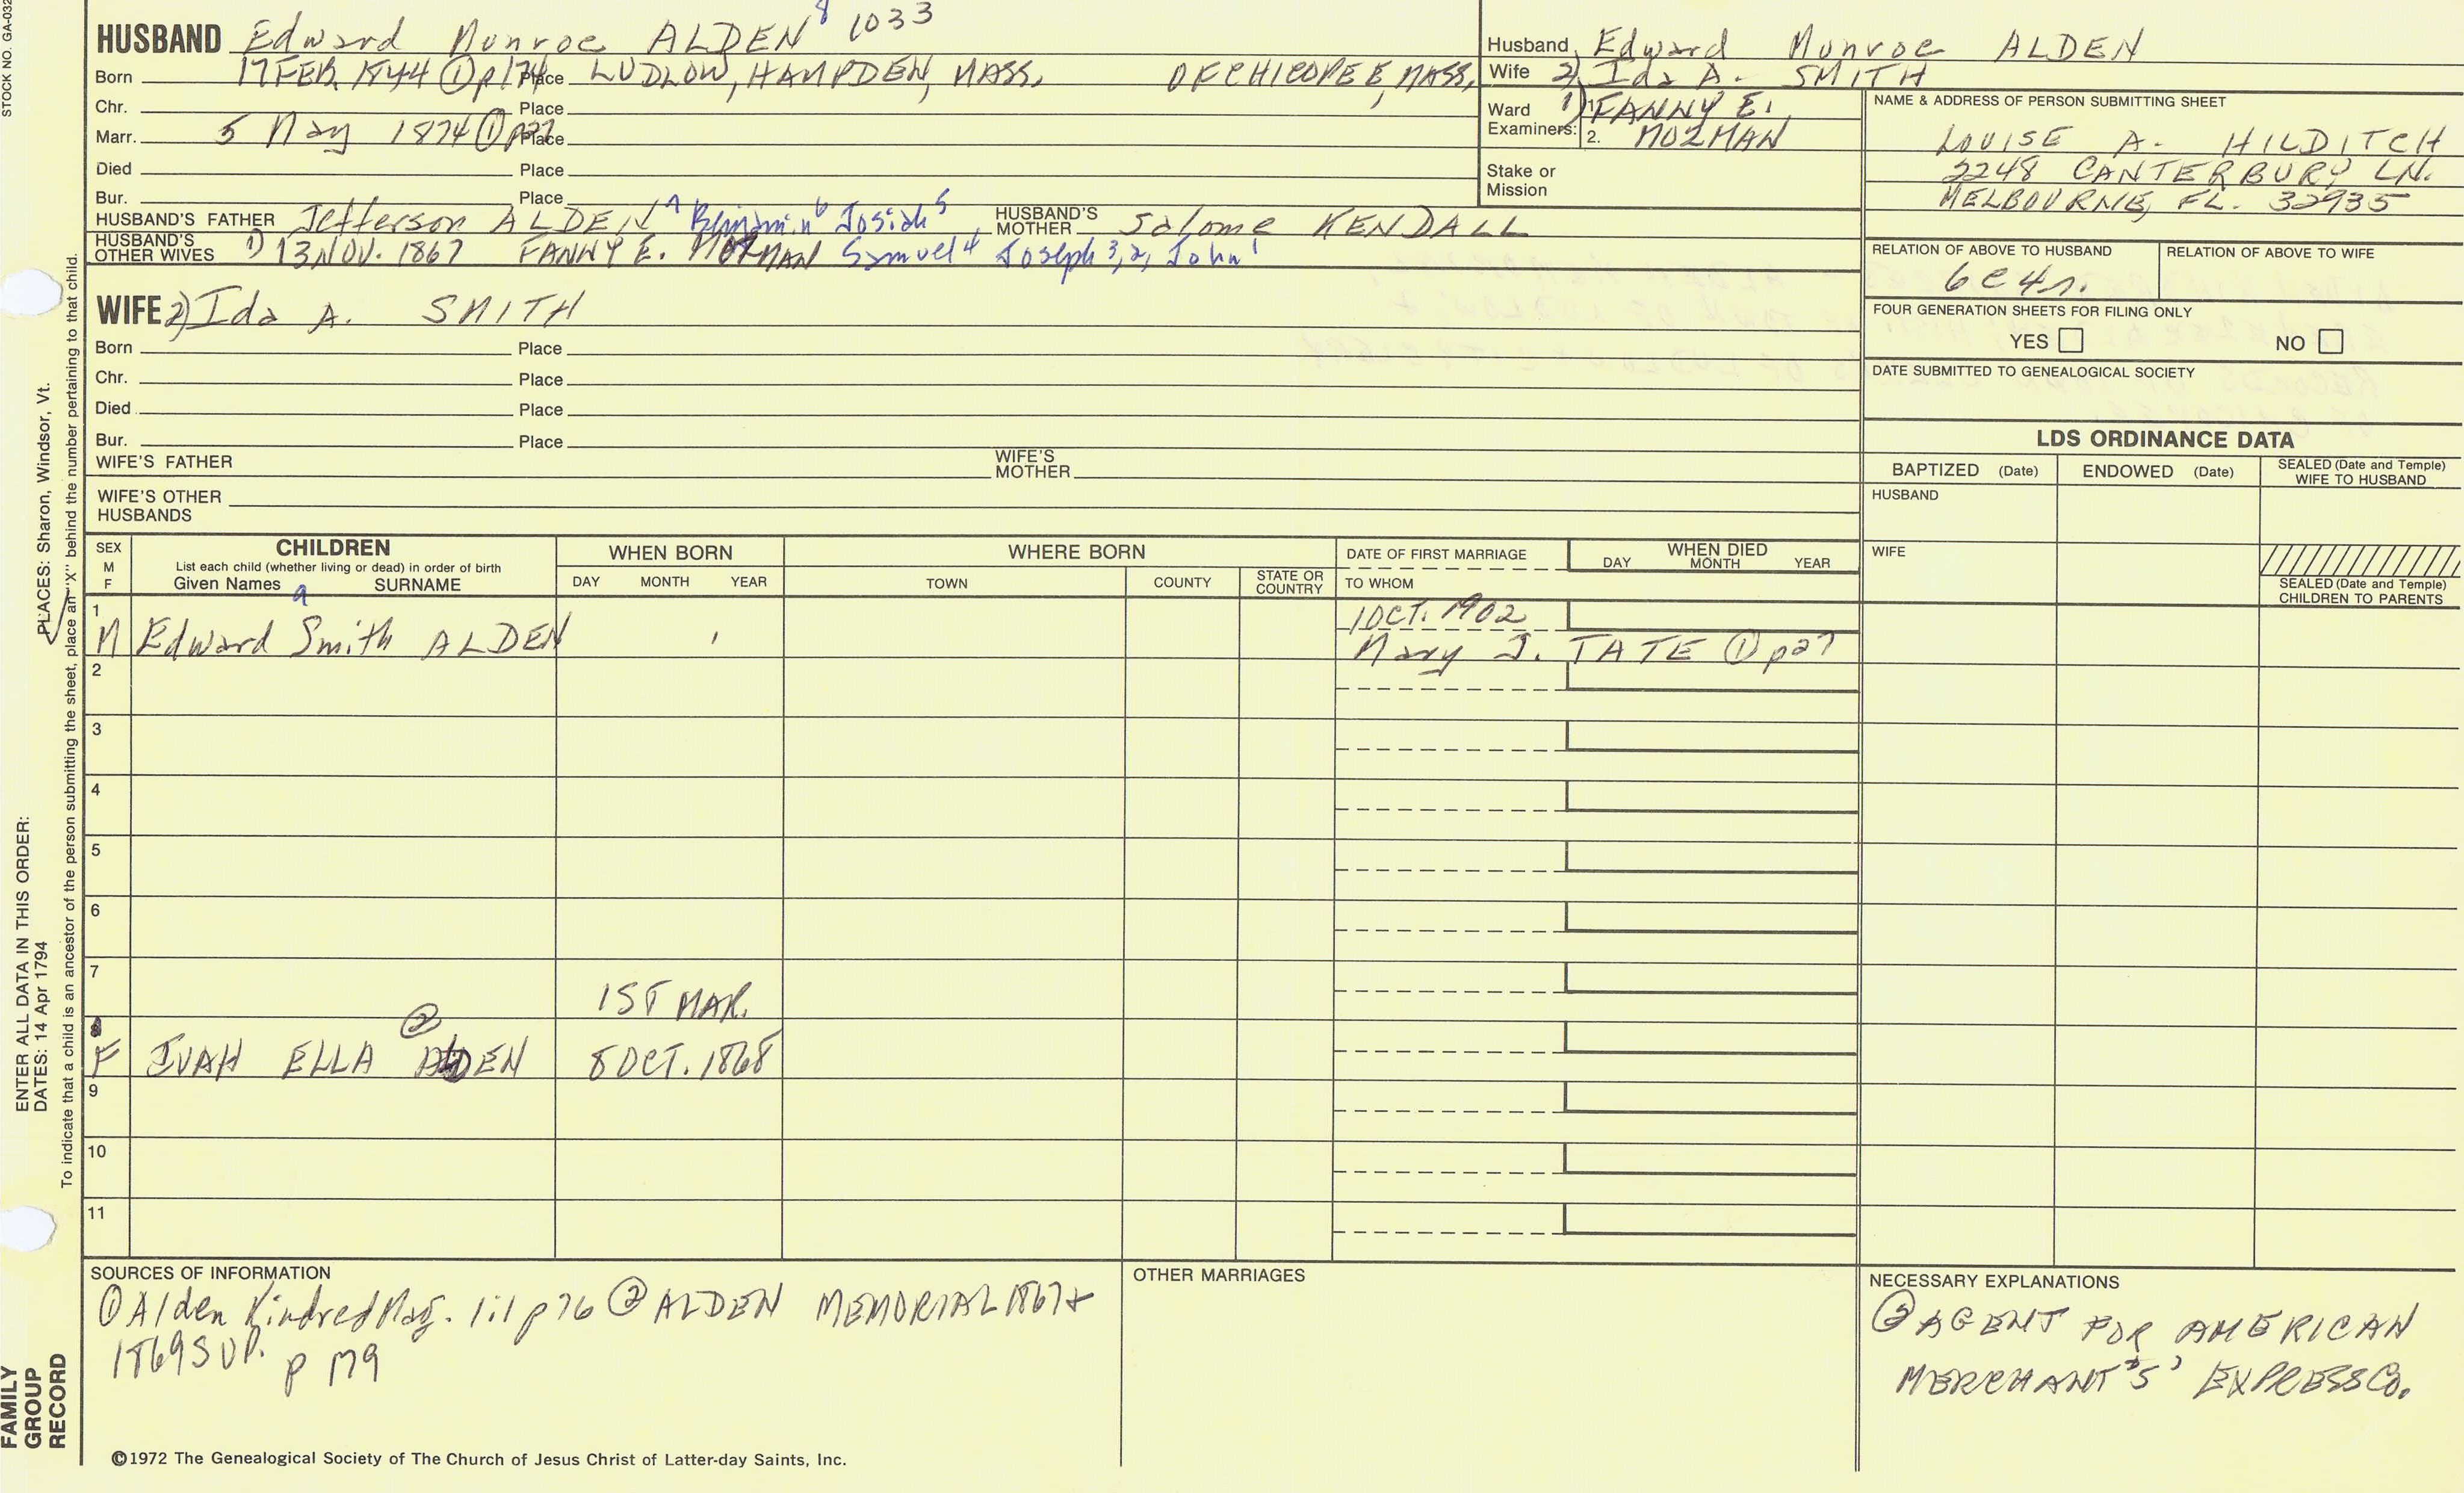 STOCK NO. GA-032
HUSBAND Edward Monroe ALDEN 8 1033
Born 17 FEB. 1844 ① p 174 Place LUDLOW, HAMPDEN, MASS. OF CHICOPEE, MASS.
Chr. Place
Marr. 5 May 1874 ① p27 Place
Died Place
Bur. Place
HUSBAND'S FATHER Jefferson ALDEN 7 Benjamin 6 Josiah 5 HUSBAND'S MOTHER Salome KENDALL
HUSBAND'S OTHER WIVES 1) 13 NOV. 1867 FANNY E. MOZMAN Samuel 4 Joseph 3,2, John 1
WIFE 2) Ida A. SMITH
Born Place
Chr. Place
Died Place
Bur. Place
WIFE'S FATHER WIFE'S MOTHER
WIFE'S OTHER HUSBANDS
Husband Edward Monroe ALDEN
Wife 2) Ida A. SMITH
Ward 1) 1. FANNY E.
Examiners: 2. MOZMAN
Stake or Mission
NAME & ADDRESS OF PERSON SUBMITTING SHEET
LOUISE A. HILDITCH
2248 CANTERBURY LN.
MELBOURNE, FL. 32935
RELATION OF ABOVE TO HUSBAND RELATION OF ABOVE TO WIFE
6c4r.
FOUR GENERATION SHEETS FOR FILING ONLY
YES NO
DATE SUBMITTED TO GENEALOGICAL SOCIETY
LDS ORDINANCE DATA
BAPTIZED (Date) ENDOWED (Date) SEALED (Date and Temple) WIFE TO HUSBAND
HUSBAND
WIFE
SEALED (Date and Temple) CHILDREN TO PARENTS
SEX M F
CHILDREN
List each child (whether living or dead) in order of birth
Given Names 9 SURNAME
WHEN BORN
DAY MONTH YEAR
WHERE BORN
TOWN COUNTY STATE OR COUNTRY
DATE OF FIRST MARRIAGE
TO WHOM
WHEN DIED
DAY MONTH YEAR
1 1 OCT. 1902
M Edward Smith ALDEN Mary J. TATE ① p27
2
3
4
5
6
7 1ST MAR.
8 ②
F IVAH ELLA ALDEN 8 OCT. 1868
9
10
11
SOURCES OF INFORMATION
① Alden Kindred Mag. 1:1 p76 ② ALDEN MEMORIAL 1867 &
1869 SUP. p 179
OTHER MARRIAGES
NECESSARY EXPLANATIONS
② AGENT FOR AMERICAN
MERCHANT'S' EXPRESS CO.
©1972 The Genealogical Society of The Church of Jesus Christ of Latter-day Saints, Inc.
FAMILY GROUP RECORD
ENTER ALL DATA IN THIS ORDER:
DATES: 14 Apr 1794
PLACES: Sharon, Windsor, Vt.
To indicate that a child is an ancestor of the person submitting the sheet, place an "X" behind the number pertaining to that child.